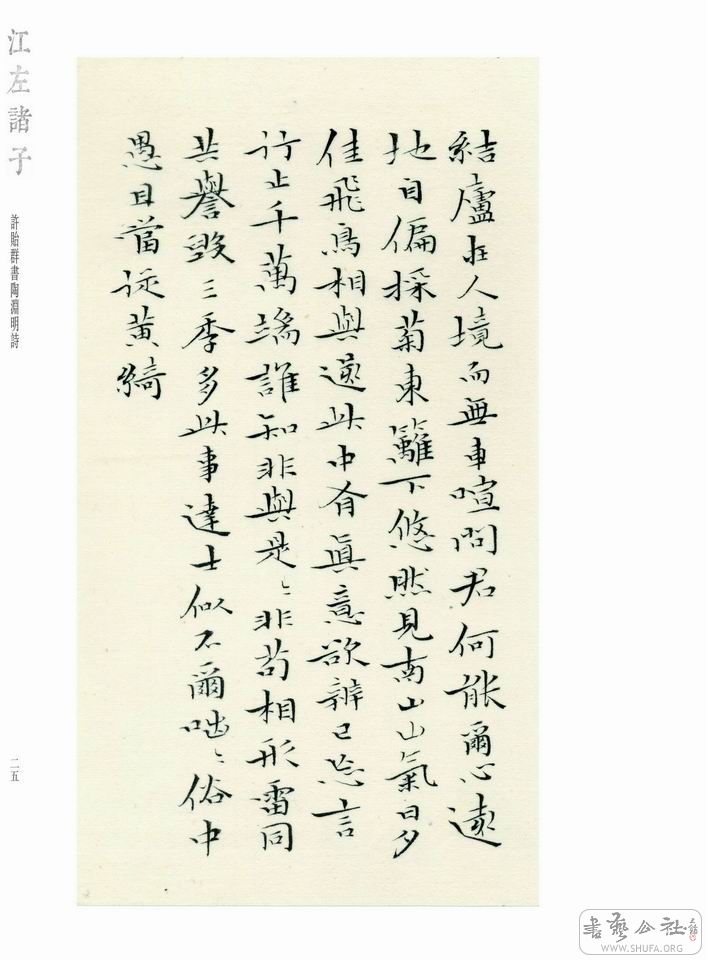 結廬在人境而無車喧問君何能爾心遠
地自偏採菊東籬下悠然見南山山氣日夕
佳飛鳥相與還此中有眞意欲辨已忘言
行止千萬端誰知非與是〻非苟相形雷同
共譽毀三季多此事達士似不爾咄〻俗中
愚且當從黃綺
江左諸子
許貽群書陶淵明詩
二五
書藝公社
WWW.SHUFA.ORG